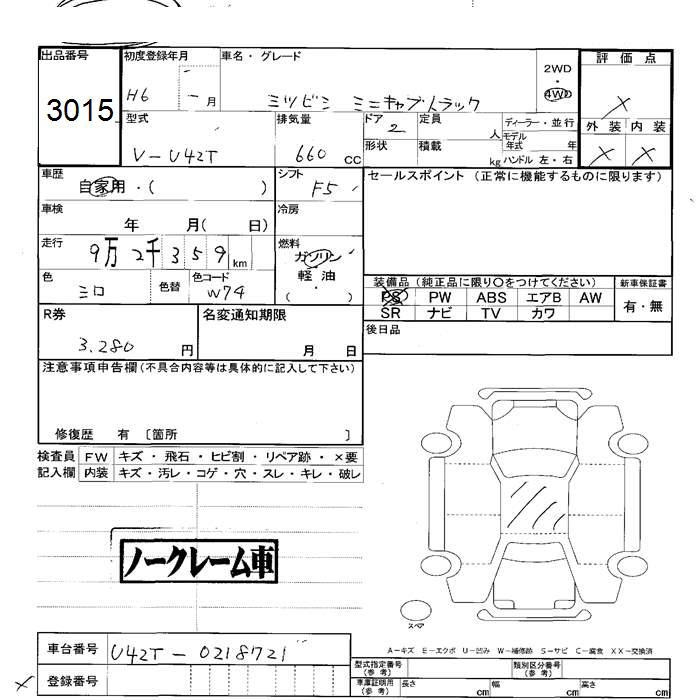 出品番号 初度登録年月 車名・グレード 2WD・4WD 評価点
3015 H6 - 月 ミツビシ ミニキャブトラック ×
型式 排気量 ドア 2 定員 人 ディーラー・並行 外装 内装
V-U42T 660 CC 形状 積載 kg モデル年式 年 ハンドル 左・右 × ×
車歴 自家用・( ) シフト F5 セールスポイント (正常に機能するものに限ります)
車検 年 月( 日) 冷房
走行 9万2千359km 燃料 ガソリン・軽油 ( )
色 シロ 色替 色コード W74
装備品 (純正品に限り〇をつけてください) 新車保証書
PS PW ABS エアB AW 有・無
SR ナビ TV カワ
R券 3.280 円 名変通知期限 月 日 後日品
注意事項申告欄(不具合内容等は具体的に記入して下さい)
修復歴 有 〔箇所 〕
検査員記入欄 FW キズ・飛石・ヒビ割・リペア跡・×要
内装 キズ・汚レ・コゲ・穴・スレ・キレ・破レ
ノークレーム車
スペア
A-キズ E-エクボ U-凹み W-補修跡 S-サビ C-腐食 XX-交換済
車台番号 U42T-0218721 型式指定番号(参考) 類別区分番号(参考)
× 登録番号 車庫証明用(参考) 長さ cm 幅 cm 高さ cm